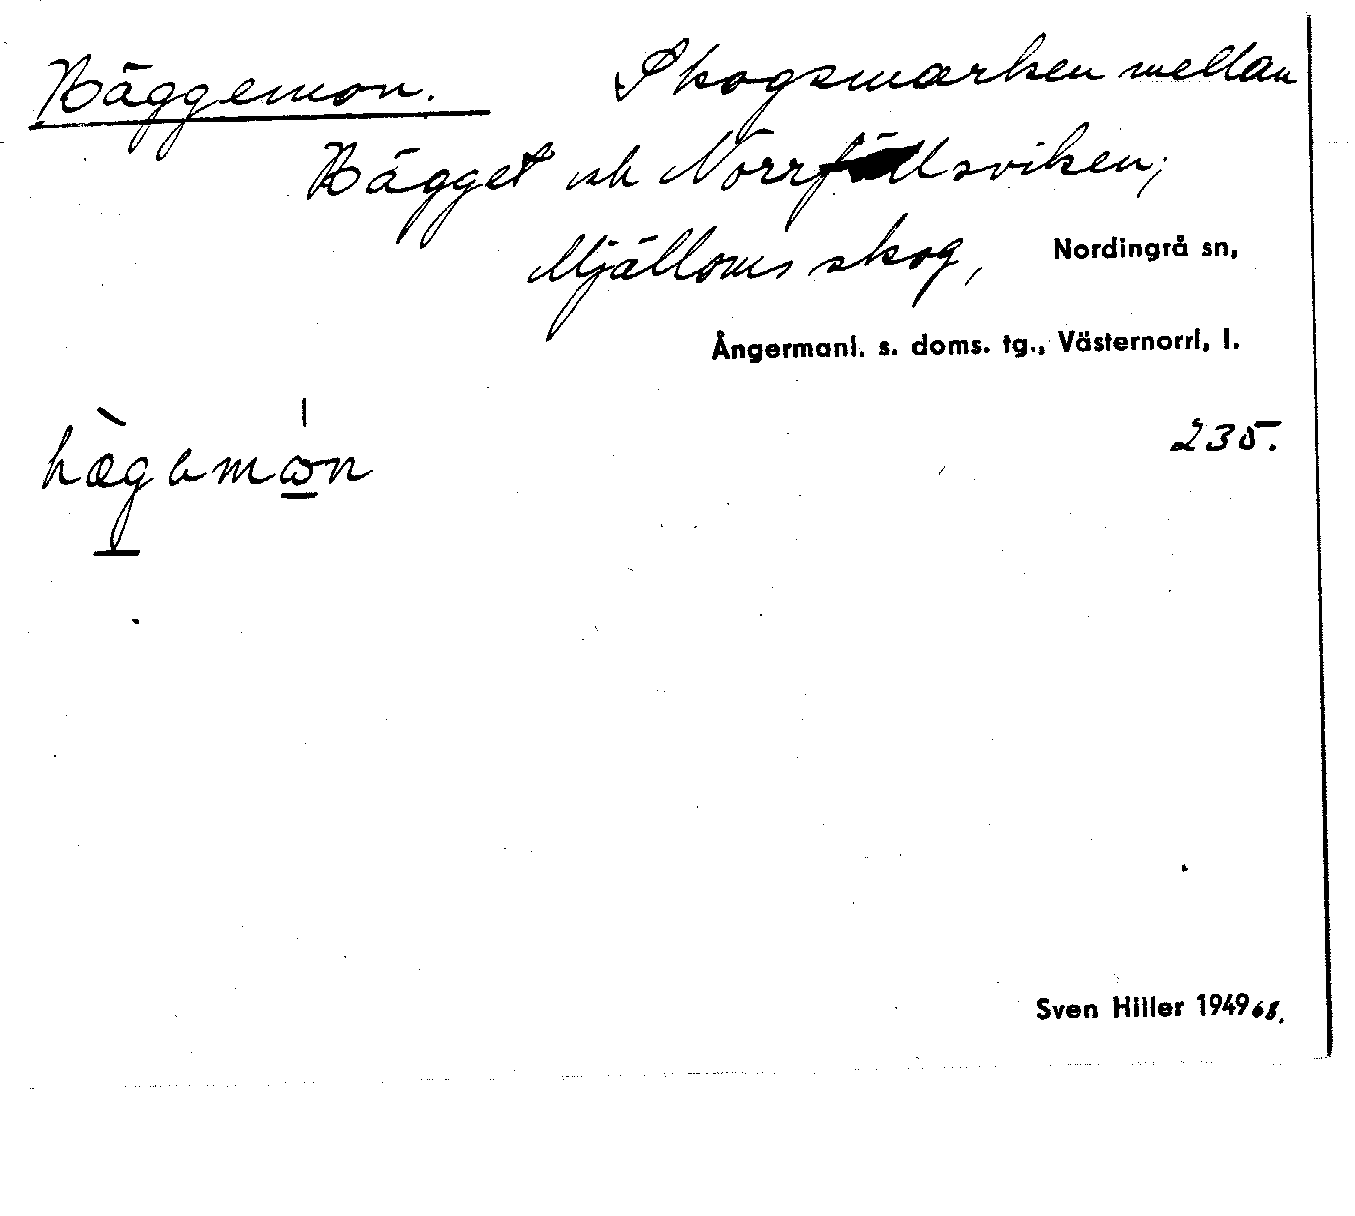 Häggemon. Skogsmarken mellan
Hägget och Norrfällsviken;
Mjälloms skog, Nordingrå sn,
Ångermanl. s. doms. tg., Västernorrl. l.
235.
Sven Hiller 1949 68.